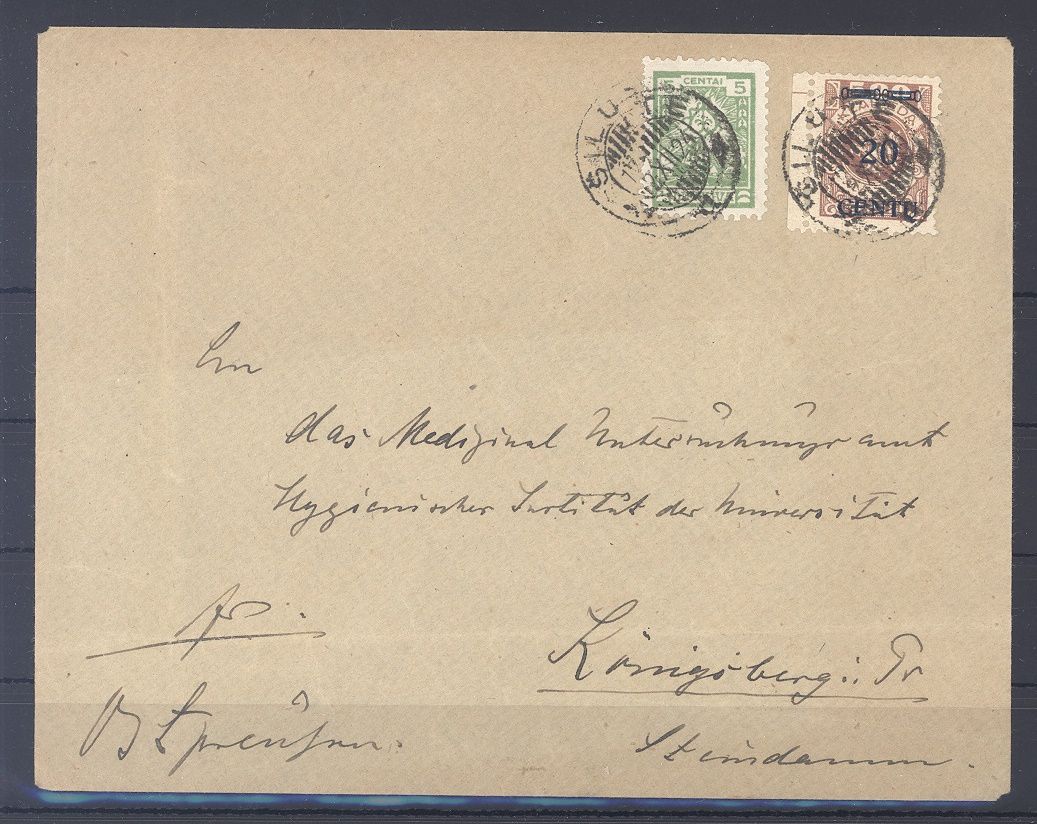 CENTAI
5 5
LIETUVA
ŠILUTĖ
KLAIPĖDA
20
CENTŲ
ŠILUTĖ
An
das Medizinal Untersuchungsamt
Hygienisches Institut der Universität
Königsberg i. Pr
Ostpreußen.
Steindamm.